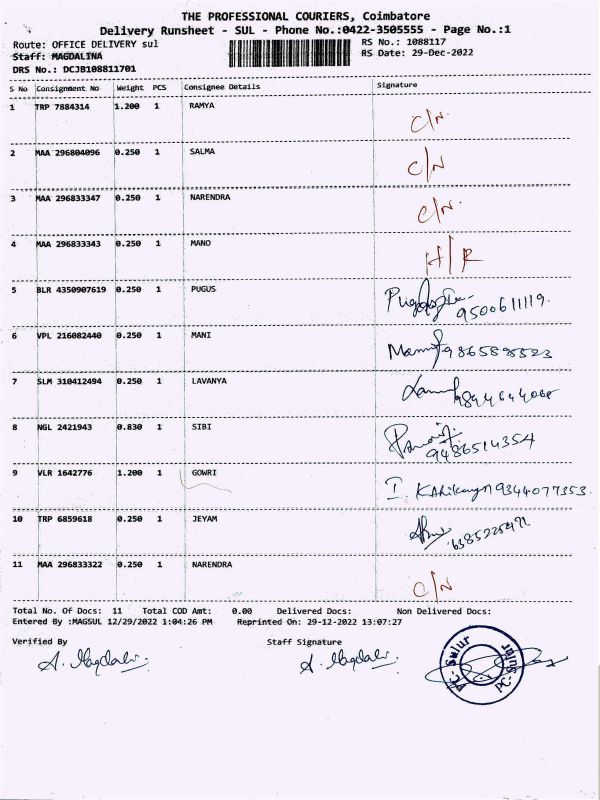 THE PROFESSIONAL COURIERS, Coimbatore
Delivery Runsheet - SUL - Phone No.:0422-3505555 - Page No.:1
Route: OFFICE DELIVERY sul RS No.: 1088117
Staff: MAGDALINA RS Date: 29-Dec-2022
DRS No.: DCJB108811701
S No Consignment No Weight PCS Consignee Details Signature
1 TRP 7884314 1.200 1 RAMYA C/N.
2 MAA 296804096 0.250 1 SALMA C/N
3 MAA 296833347 0.250 1 NARENDRA C/N.
4 MAA 296833343 0.250 1 MANO H/R
5 BLR 4350907619 0.250 1 PUGUS
9500611119.
6 VPL 216082440 0.250 1 MANI
7 SLM 310412494 0.250 1 LAVANYA
8 NGL 2421943 0.830 1 SIBI
9486514354
9 VLR 1642776 1.200 1 GOWRI 9344077353.
10 TRP 6859618 0.250 1 JEYAM
11 MAA 296833322 0.250 1 NARENDRA C/N
Total No. Of Docs: 11 Total COD Amt: 0.00 Delivered Docs: Non Delivered Docs:
Entered By :MAGSUL 12/29/2022 1:04:26 PM Reprinted On: 29-12-2022 13:07:27
Verified By Staff Signature
PC-Sulur PC-Sulur